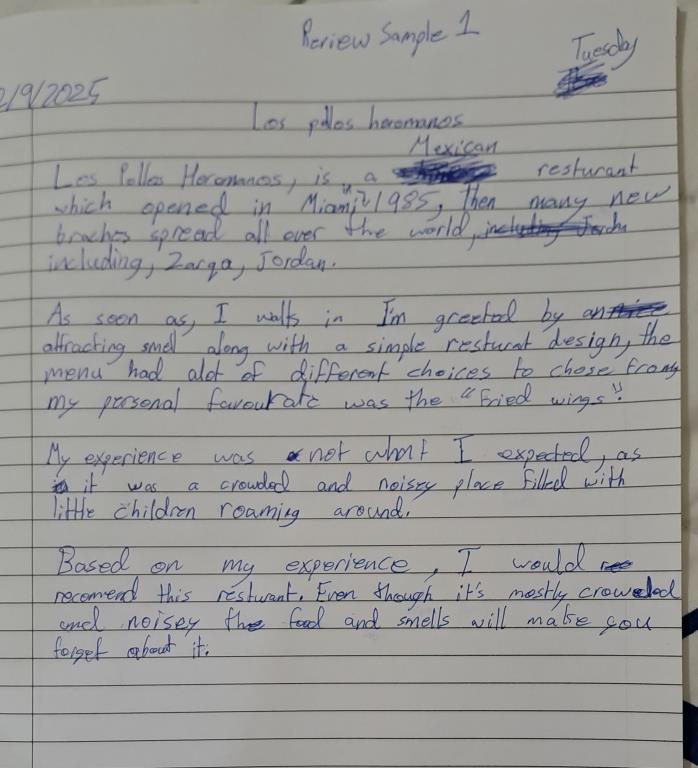 Review Sample 1
Tuesday
2/9/2025
Los pollos heromanos
Mexican
Los Pollos Heromanos, is a resturant
which opened in Miami in 1985, Then many new
braches spread all over the world,
including, Zarqa, Jordan.
As soon as, I walks in I'm greeted by an
attracting smell along with a simple resturat design, the
menu had alot of different choices to chose from,
my personal favourate was the "Fried wings".
My experience was not what I expected, as
it was a crowded and noisey place filled with
little children roaming around.
Based on my experience, I would
recomend this resturant. Even though it's mostly croweded
and noisey the food and smells will make you
forget about it.